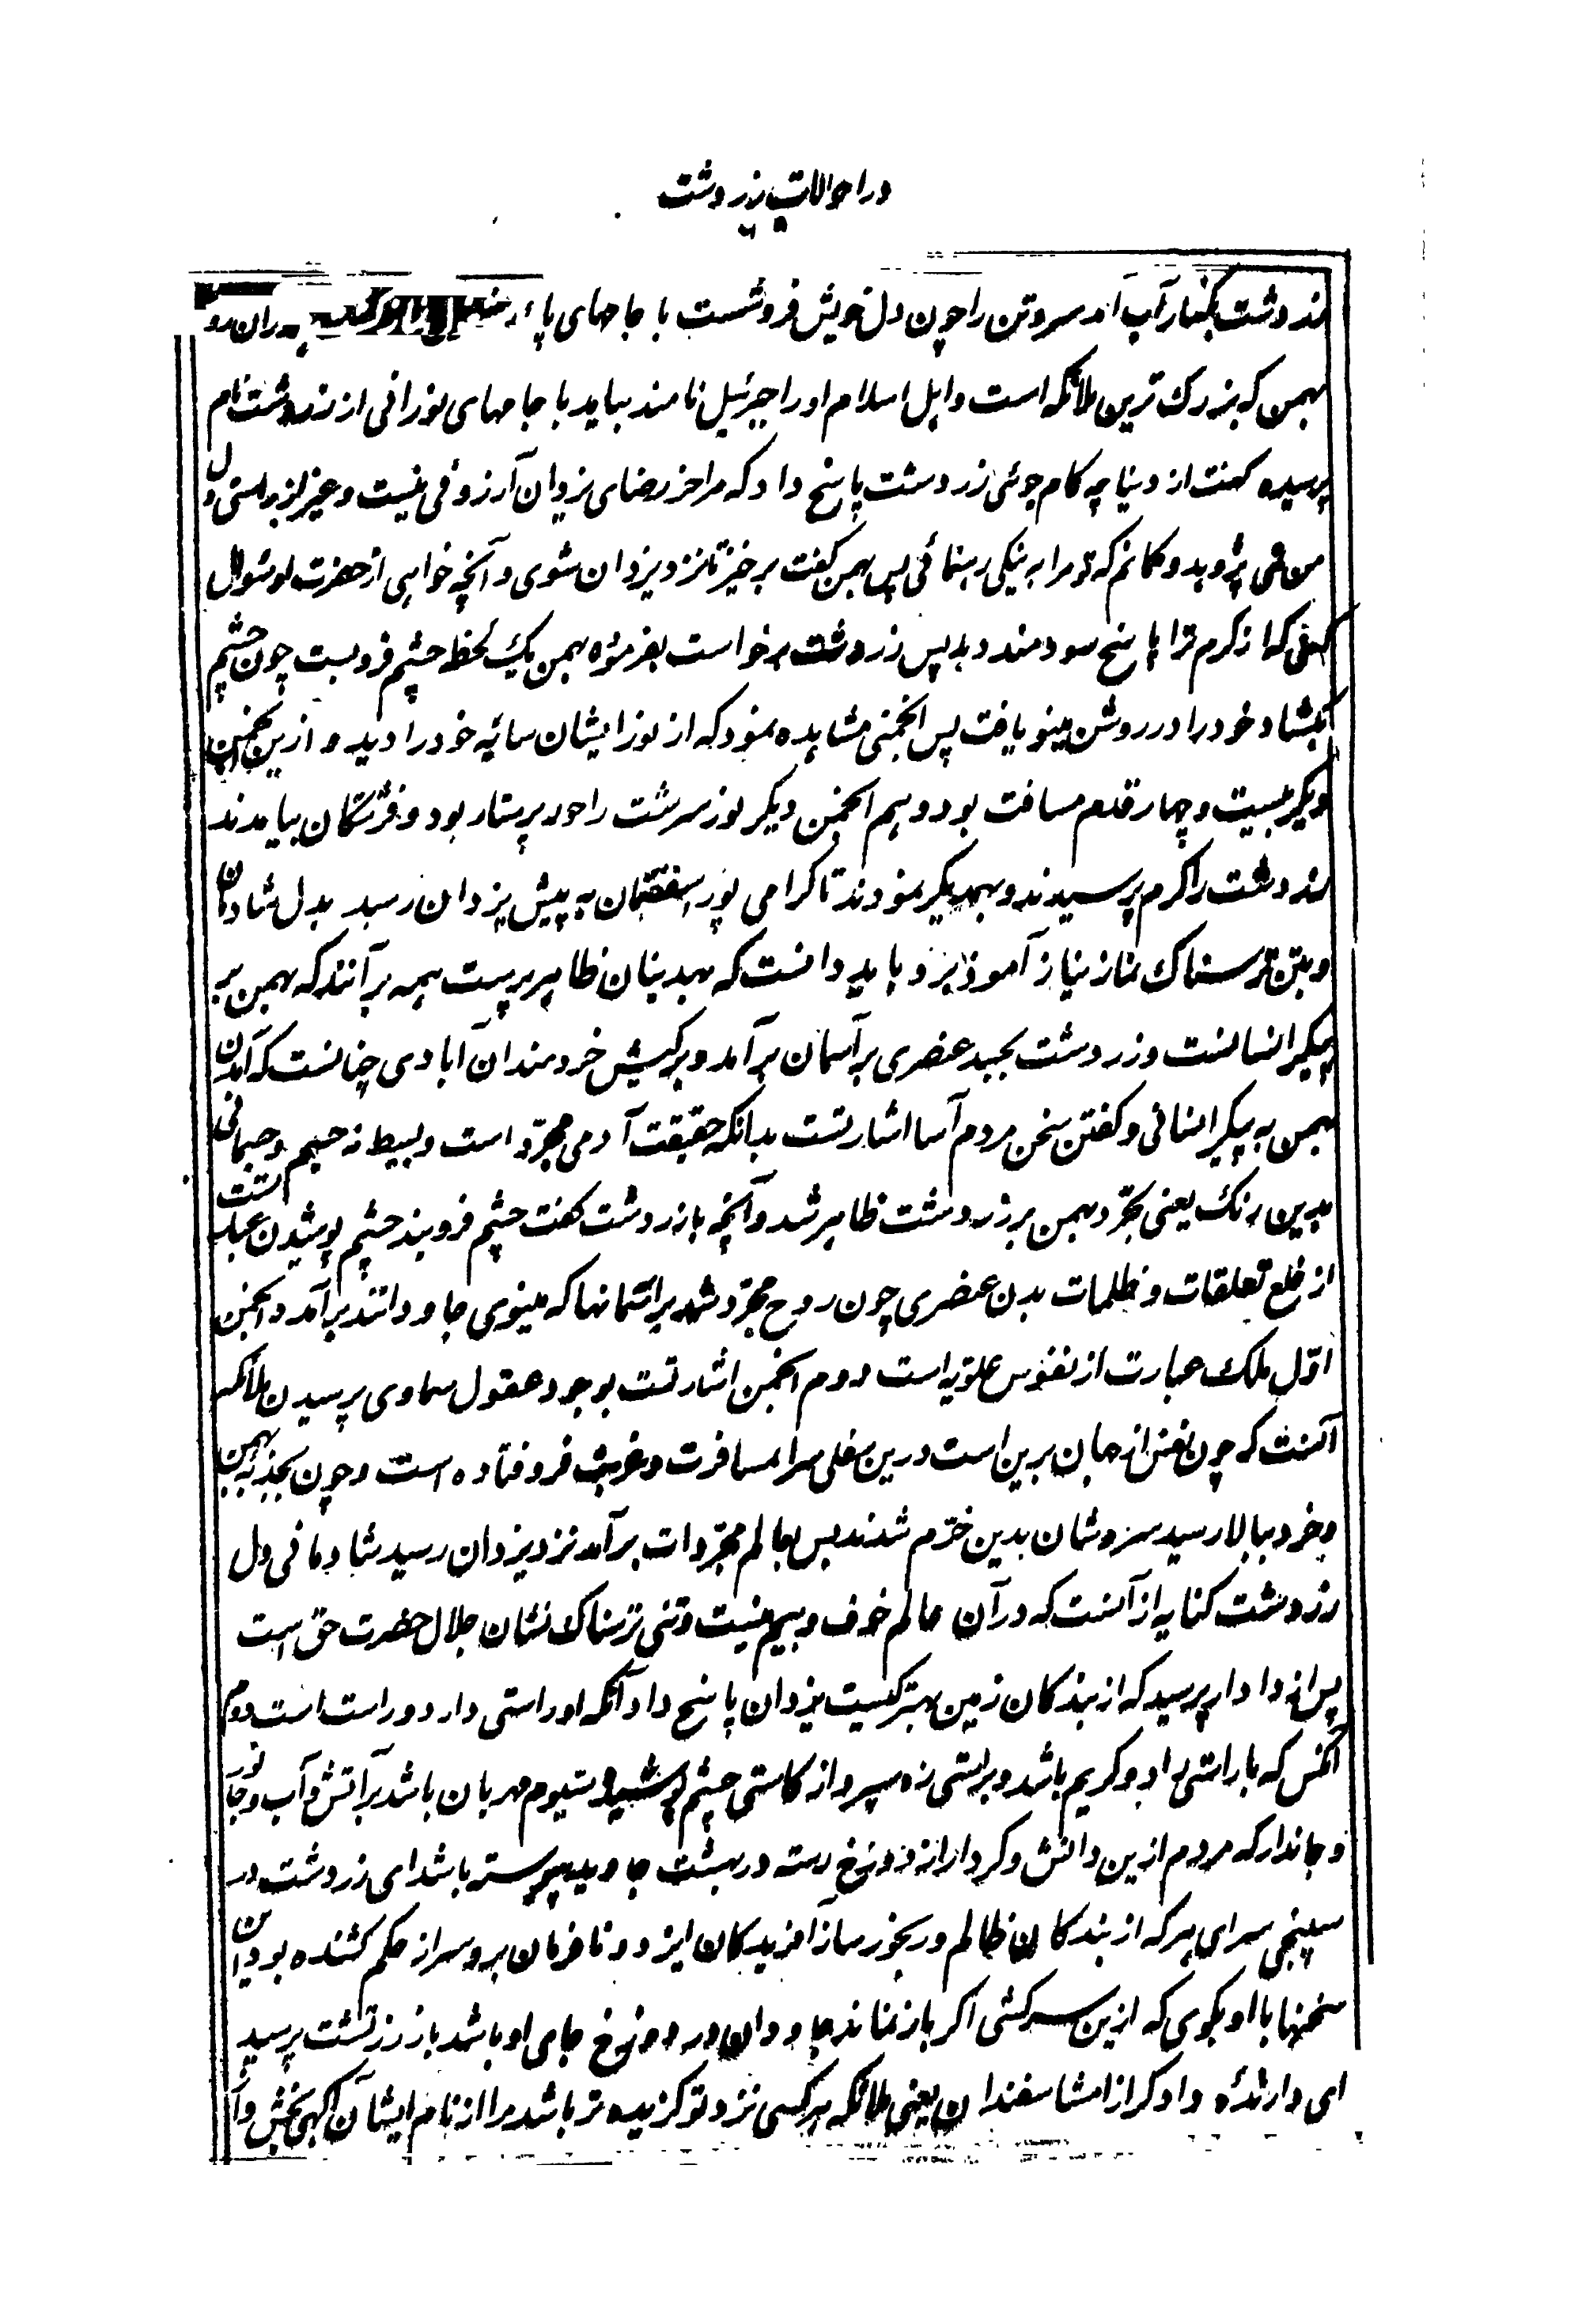 در احوالات زردشت
زردشت بکنار آب آمد سر و تن را چون دل خویش فرو شست با جامهای پا در آن رو
بهمن که بزرک ترین ملائکه است و اهل اسلام او را جبرئیل نامند بیامد با جامهای نورانی از زردشت نام
پرسیده کفت از دنیا چه کام جوئی زردشت پاسخ داد که مرا جز رضای یزدان آرزوئی نیست و غیر از براستی دل
من نمی پژوهد و کمانم که تو مرا به نیکی رهنمائی پس بهمن کفت برخیز تا نزد یزدان شوی و آنچه خواهی از حضرت او سئوال
کنی که از کرم ترا پاسخ سودمند دهد پس زردشت برخواست بفرموده بهمن یک لحظه چشم فرو بست چون چشم
بکشاد خود را در روشن مینو یافت پس انجمنی مشاهده نمود که از نور ایشان سایه خود را دیده و ازین انجمن تا
دیکر بیست و چهار قدم مسافت بود و هم انجمن دیکر نور سرشت را حور پرستار بود و فرشتکان بیامدند
زردشت را کرم پرسیدند و بهمدیکر نمودند تا کرامی پور اسفنتمان به پیش یزدان رسید بدل شادمان
و بتن ترسناک نماز نیاز آمود پس و باید دانست که بهدینان ظاهر پرست همه برآنند که بهمن بر
پیکر انسانست و زردشت بجسد عنصری بر آسمان بر آمد و بر کیش خردمندان آبادی چنانست که آمدن
بهمن به پیکر انسانی و کفتن سخن مردم آسا اشارتست بدانکه حقیقت آدمی مجرّد است و بسیط نه جسم و جسمانی
بدین رنک یعنی تجرّد بهمن بر زردشت ظاهر شد و آنچه با زردشت کفت چشم فرو بند چشم پوشیدن عبارتست
از خلع تعلقات و ظلمات بدن عنصری چون روح مجرّد شد بر آسمانها که مینوی جاودانند برآمد و انجمن
اوّل ملک عبارت از نفوس علویه است دوم انجمن اشارتست بوجود عقول سماوی پرسیدن ملائکه
آنست که چون نفس از جهان برین است درین سفلی سرا بمسافرت و غربت فرو فتاده است و چون بجذبه بهمن
و خرد ببالا رسید سروشان بدین خرّم شدند پس بعالم مجرّدات برآمد نزد یزدان رسید شادمانی دل
زردشت کنایه از آنست که در آن عالم خوف و بیم نیست و تنی ترسناک نشان جلال حضرت حق است
پس از دادار پرسید که از بندکان زمین بهتر کیست یزدان پاسخ داد آنکه او راستی دارد و راست است دوم
آنکس که با راستی راد و کریم باشد و براستی ره سپرد از کاستی چشم پوشیده سیوم مهربان باشد بر آتش و آب و جانور
و جاندار که مردم ازین دانش و کردار از دوزخ رسته در بهشت جاوید پیوسته باشد ای زردشت در
سپنجی سرای هر که از بندکان ظالم و رنجور ساز آفریدکان ایزد و نافرمان بر و سر از حکم کشنده بود این
سخنها با او بکوی که ازین سرکشی اکر باز نماند جاودان در دوزخ جای او باشد باز زرتشت پرسید
ای دارنده دادکر از امشاسفندان یعنی ملائکه هر کسی نزد تو کزیده تر باشد مرا از نام ایشان آکهی بخش و از